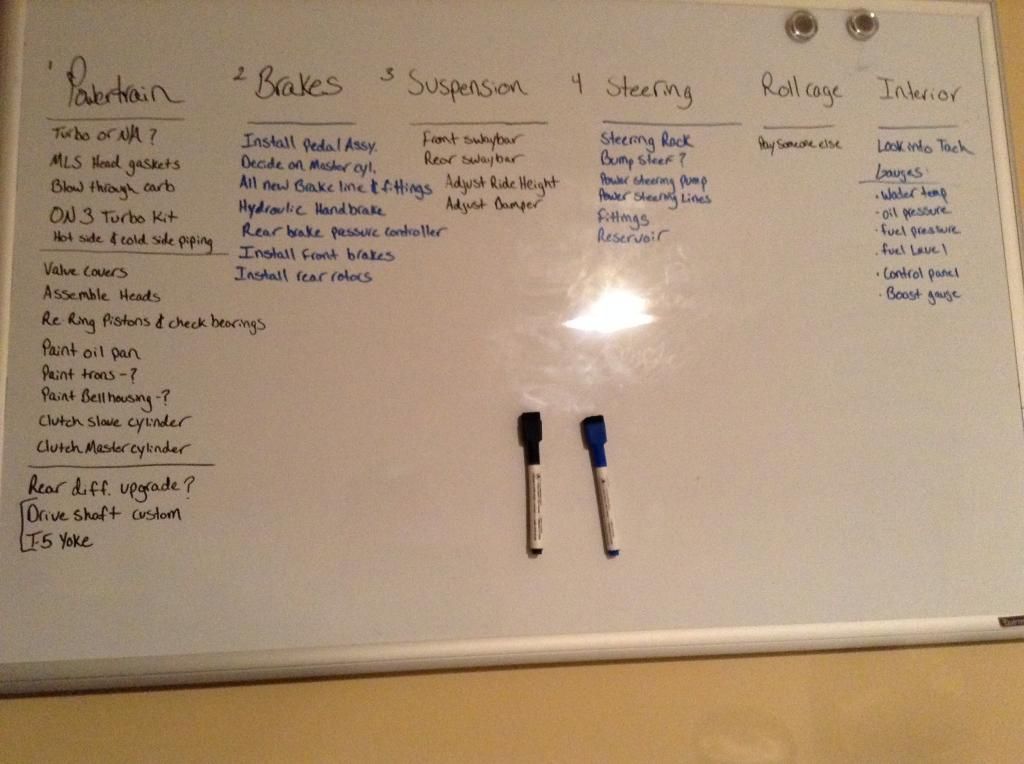 1 Powertrain
Turbo or N/A ?
MLS Head gaskets
Blow through carb
ON 3 Turbo Kit
Hot side & cold side piping
Valve covers
Assemble Heads
Re-Ring Pistons & check bearings
Paint oil pan
Paint trans -?
Paint Bellhousing -?
Clutch slave cylinder
Clutch Master cylinder
Rear diff. upgrade?
Drive shaft custom
T-5 Yoke
2 Brakes
Install Pedal Assy.
Decide on Master cyl.
All new Brake line & fittings
Hydraulic Handbrake
Rear brake pressure controller
Install front brakes
Install rear rotors
3 Suspension
Front swaybar
Rear swaybar
Adjust Ride Height
Adjust Damper
4 Steering
Steering Rack
Bump steer ?
Power steering pump
Power steering Lines
Fittings
Reservoir
Roll cage
Pay someone else
Interior
Look into Tach
Gauges:
• Water temp
• oil pressure
• fuel pressure
• fuel Level
• Control panel
• Boost gauge